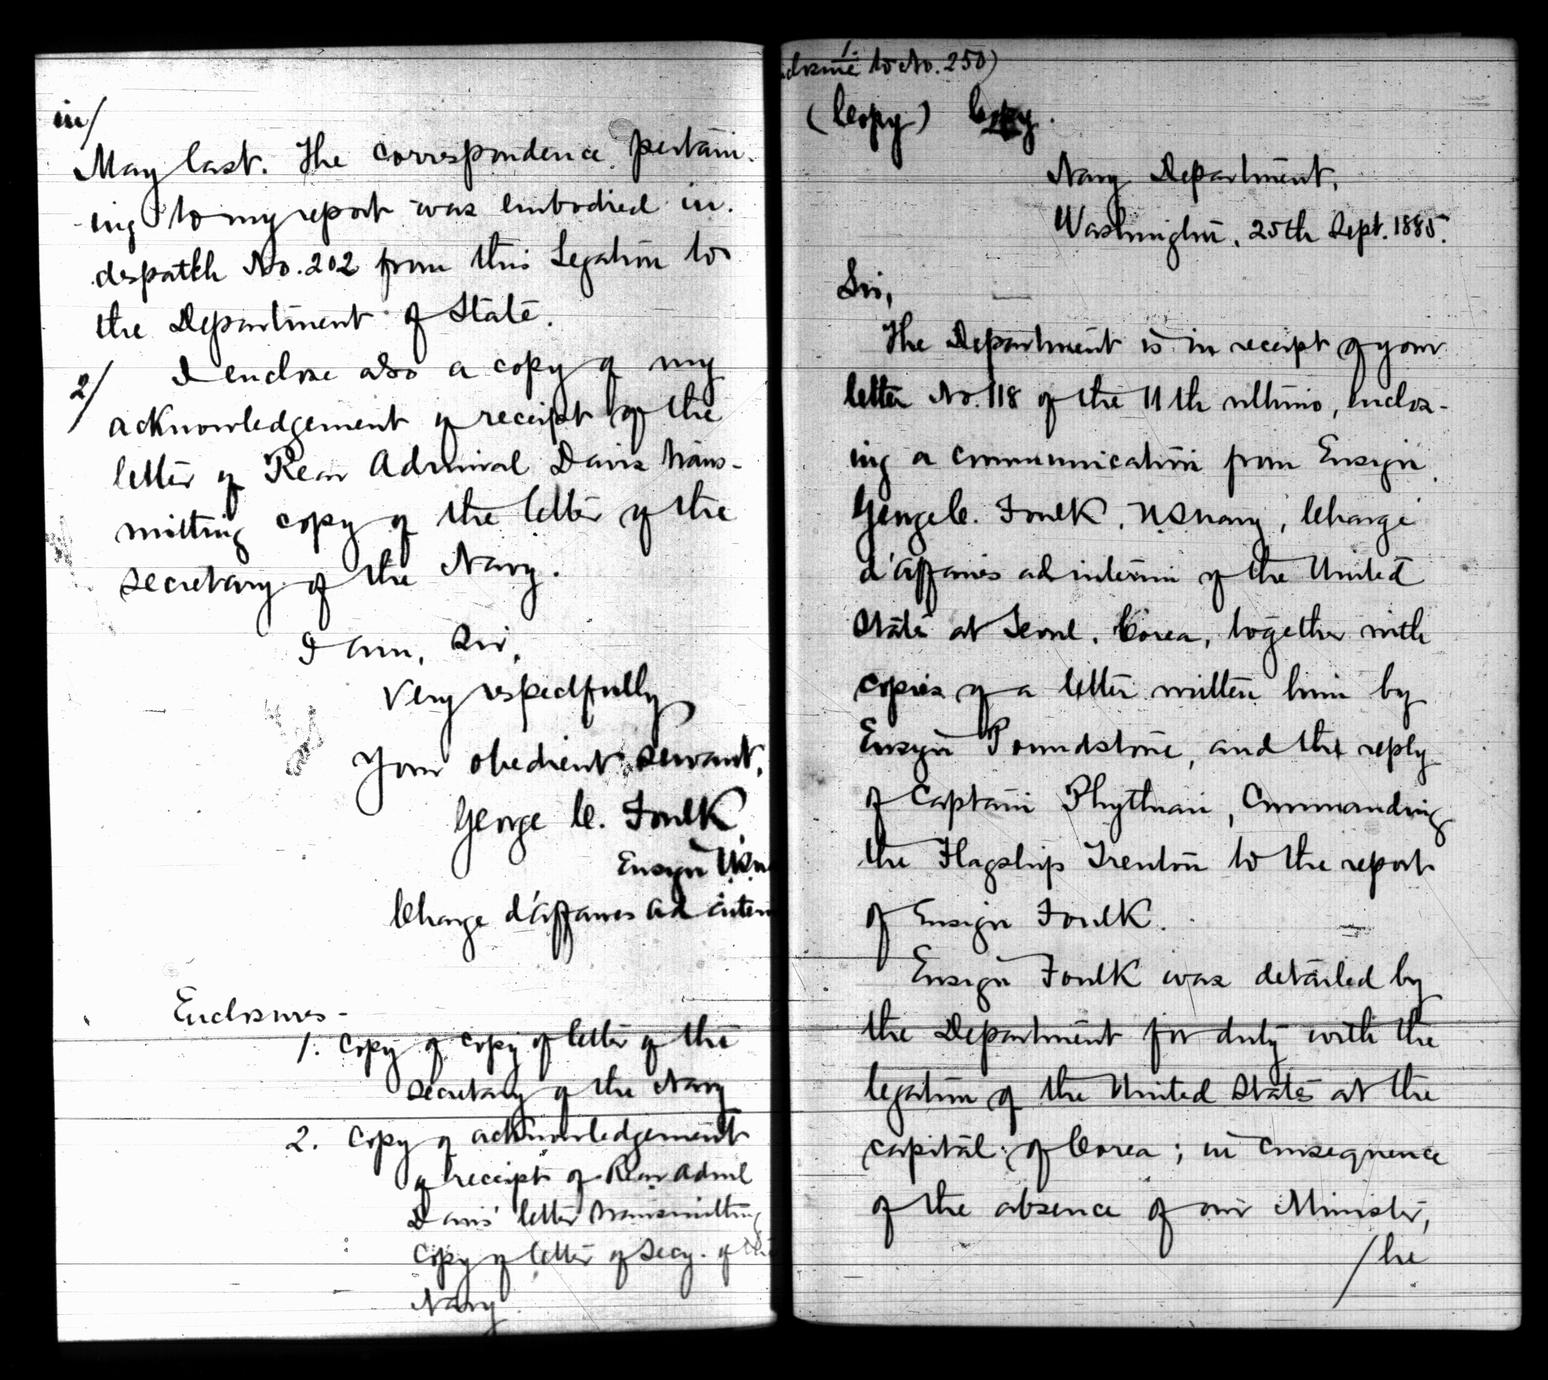 in/
May last. The correspondence pertain-
-ing to my report was embodied in
despatch No. 202 from this Legation to
the Department of State.
2/ I enclose also a copy of my
acknowledgement of receipt of the
letter of Rear Admiral Davis trans-
mitting copy of the letter of the
Secretary of the Navy.
I am, Sir,
Very respectfully
Your obedient servant,
George C. Foulk
Ensign U.S.N.
Charge d'affaires ad interi
Enclosures -
1. Copy of copy of letter of the
Secretary of the Navy
2. Copy of acknowledgement
of receipt of Rear Adml
Davis' letter transmitting
copy of letter of Secy. of the
Navy.
1.
closure to No. 250)
(Copy) Copy.
Navy Department,
Washington, 25th Sept. 1885.
Sir,
The Department is in receipt of your
letter No. 118 of the 11th ultimo, enclos-
ing a communication from Ensign
George C. Foulk, U.S. Navy, Charge
d'affaires ad interim of the United
States at Seoul, Corea, together with
copies of a letter written him by
Ensign Poundstone, and the reply
of Captain Phythian, Commanding
the Flagship Trenton to the report
of Ensign Foulk.
Ensign Foulk was detailed by
the Department for duty with the
legation of the United States at the
capital of Corea; in consequence
of the absence of our Minister,
/he